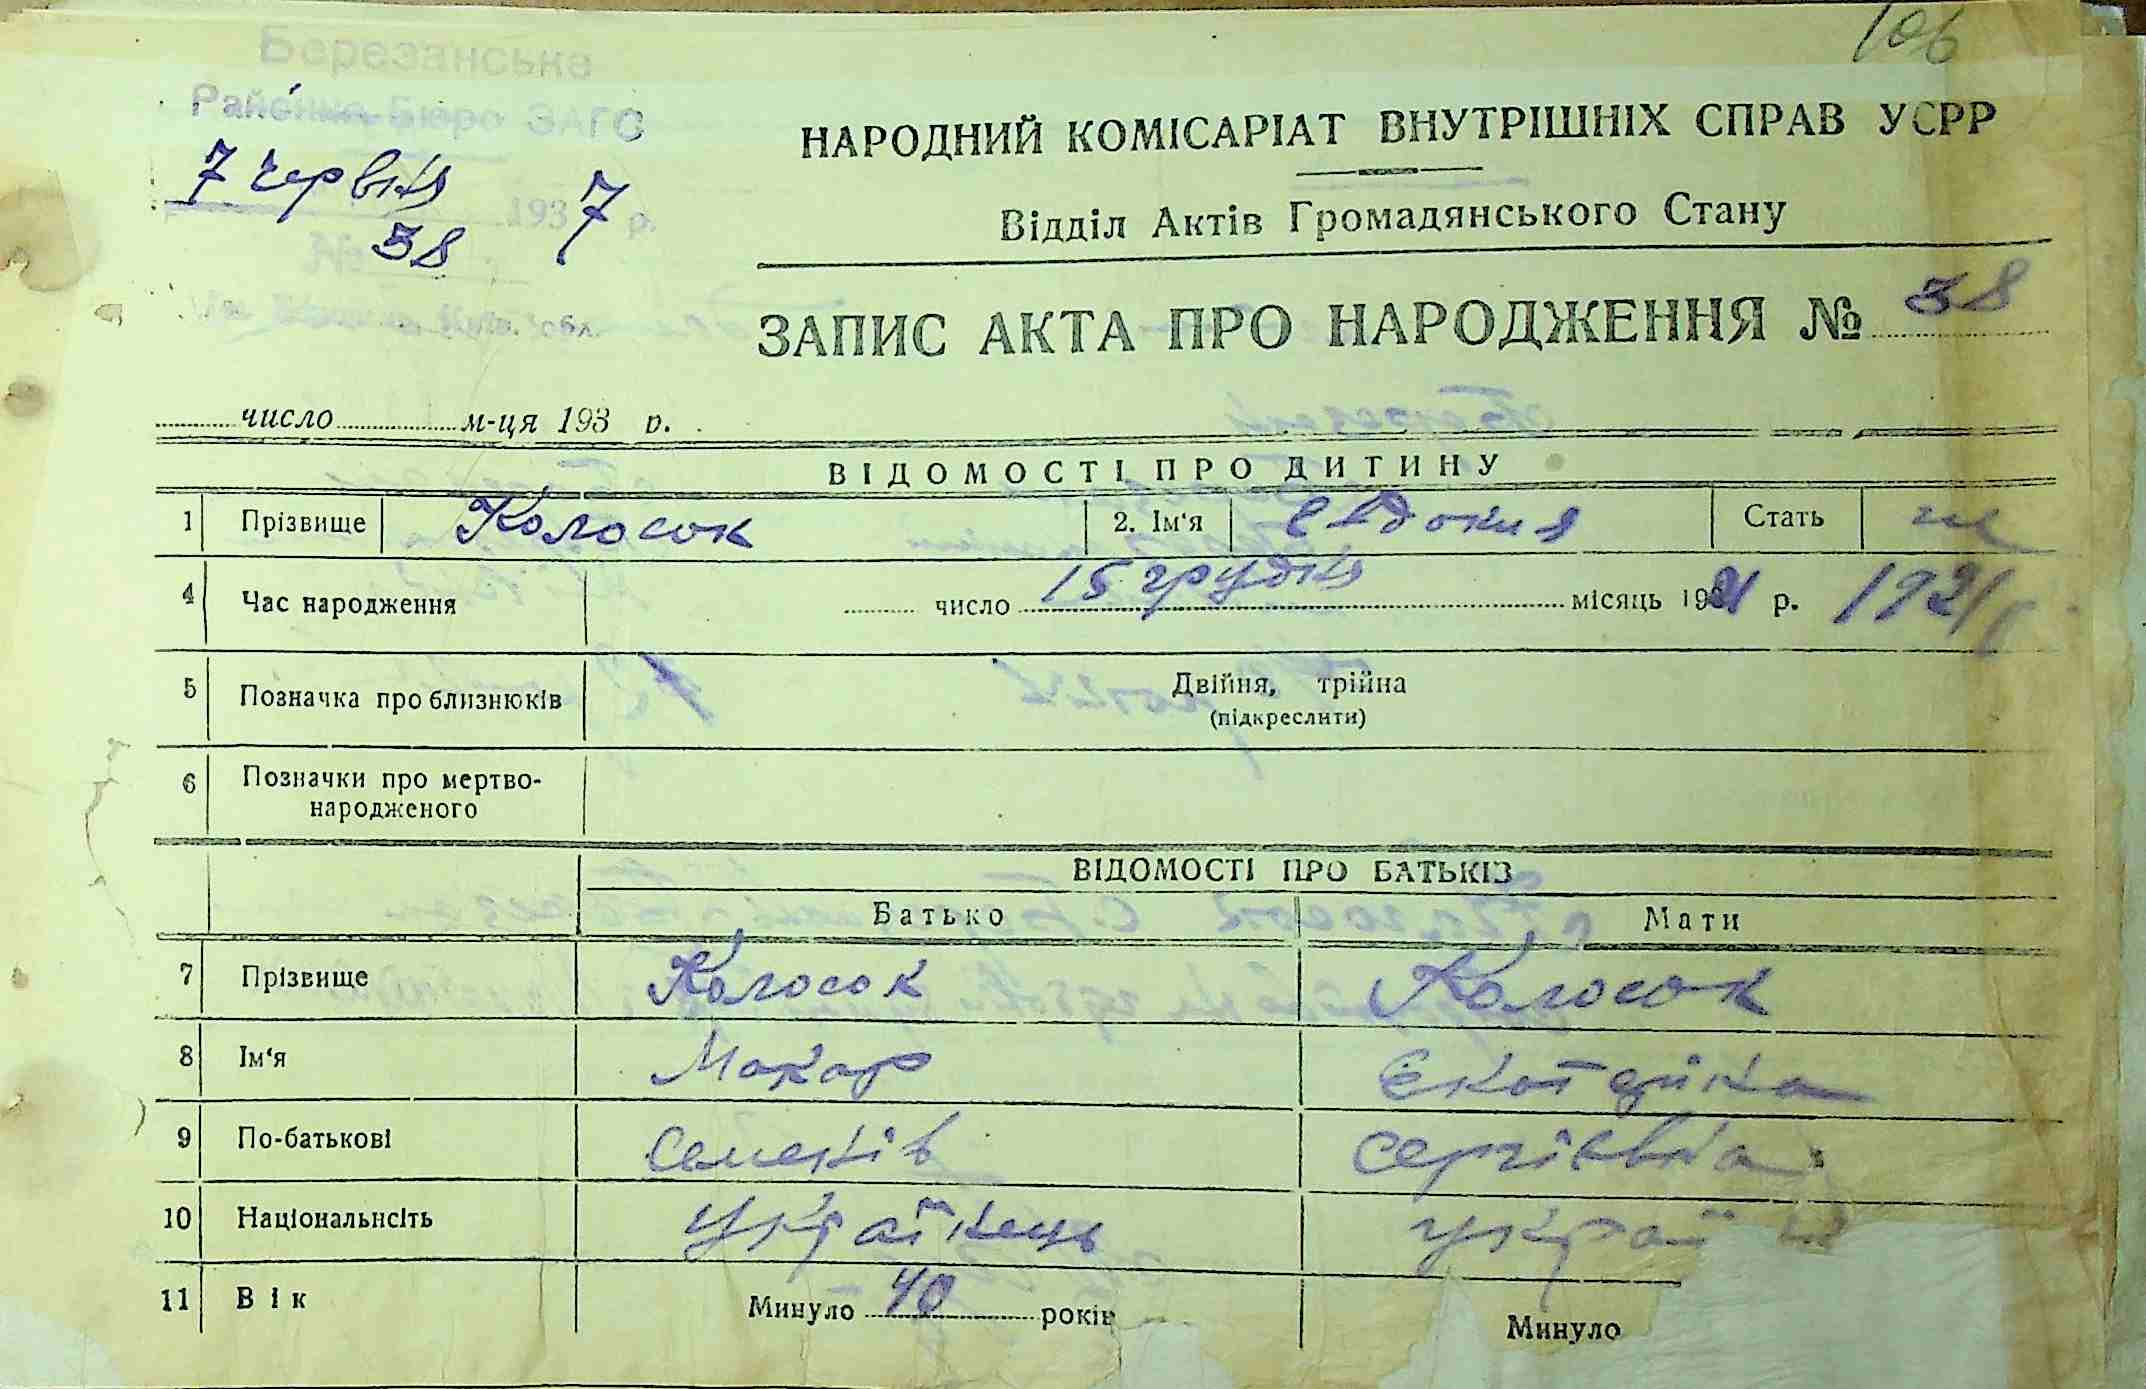 106
Березанське
Районне Бюро ЗАГС
7 червня 1937 р.
№ 38
Київ. обл.
НАРОДНИЙ КОМІСАРІАТ ВНУТРІШНІХ СПРАВ УСРР
Відділ Актів Громадянського Стану
ЗАПИС АКТА ПРО НАРОДЖЕННЯ № 38
число м-ця 193 р.
ВІДОМОСТІ ПРО ДИТИНУ
1 Прізвище Колосок 2. Ім‘я Євдокия Стать ж
4 Час народження число 15 грудня місяць 1921 р. 1921
5 Позначка про близнюків Двійня, трійна
(підкреслити)
6 Позначки про мертво-
народженого
ВІДОМОСТІ ПРО БАТЬКІВ
Батько Мати
7 Прізвище Колосок Колосок
8 Ім‘я Макар Єкатерина
9 По-батькові Семенів Сергіевна
10 Національнсіть українець україн
11 Вік Минуло 40 років Минуло